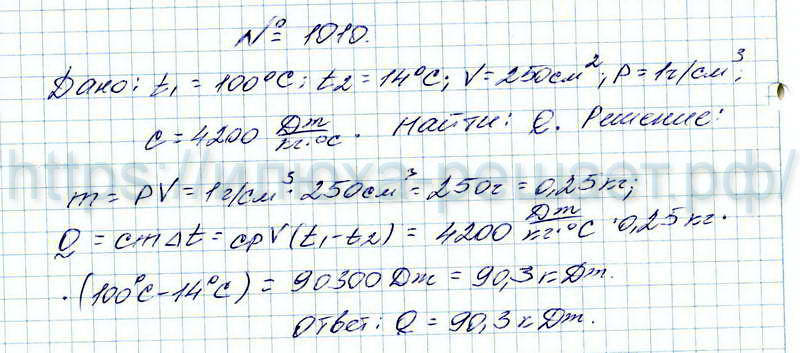 № 1010.
Дано: t₁ = 100°C; t2 = 14°C; V = 250см²; ρ = 1г/см³;
c = 4200 Дж/кг·°C. Найти: Q. Решение:
https://илюха-решает.рф/
m = ρV = 1г/см³ · 250см³ = 250г = 0,25кг;
Q = cmΔt = cρV(t₁-t2) = 4200 Дж/кг·°C · 0,25кг·
·(100°C-14°C) = 90300 Дж = 90,3 кДж.
Ответ: Q = 90,3 кДж.